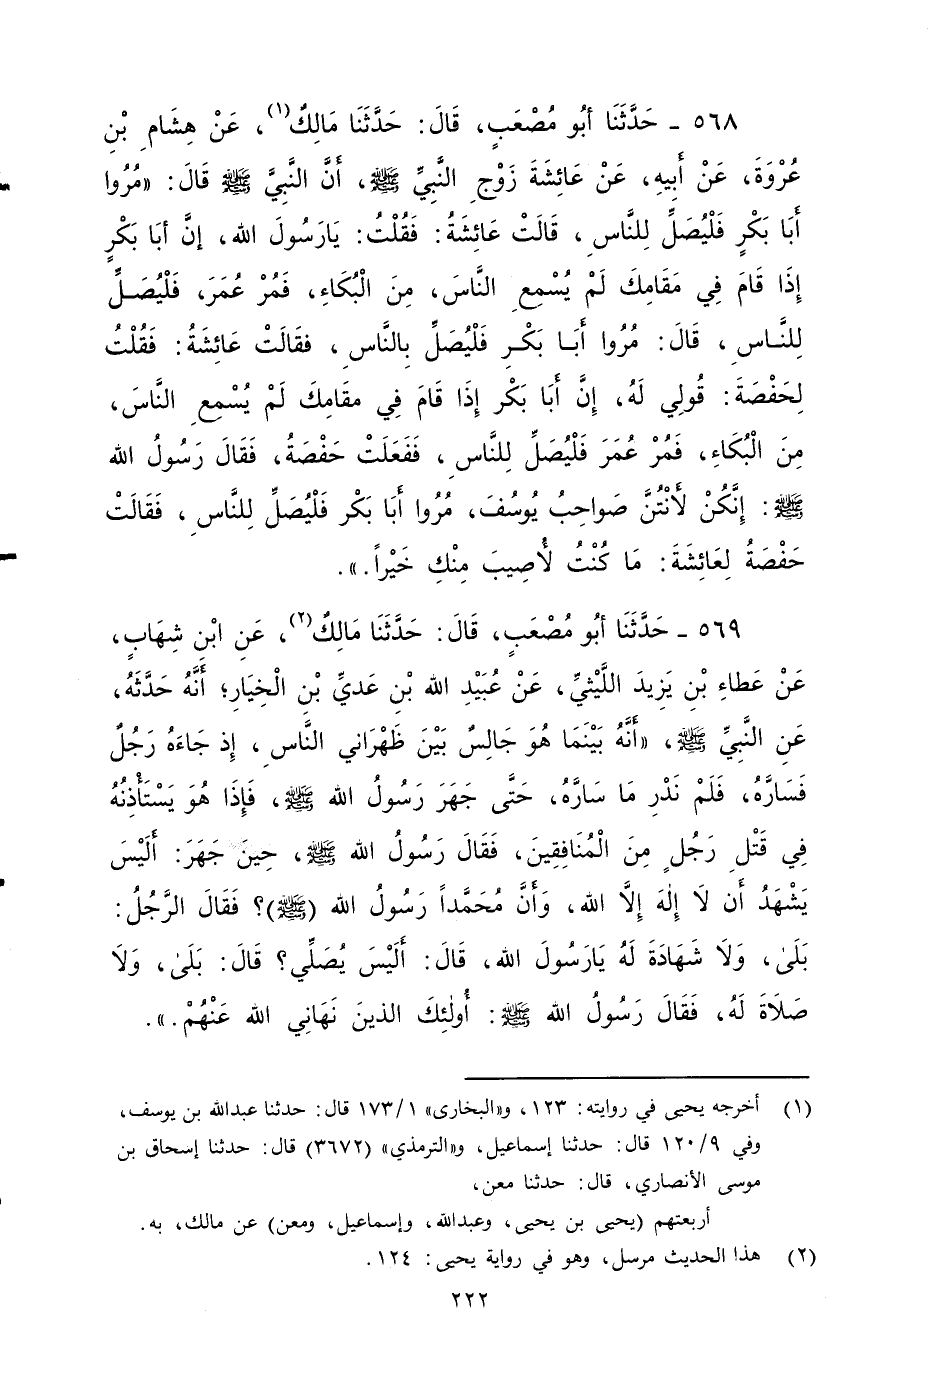 ٥٦٨ ـ حَدَّثَنَا أبُو مُصْعَبٍ، قَالَ: حَدَّثَنَا مَالِكٌ(١)، عَنْ هِشَامِ بْنِ
عُرْوَةَ، عَنْ أَبِيهِ، عَنْ عَائِشَةَ زَوْجِ النَّبِيِّ ﷺ، أَنَّ النَّبِيَّ ﷺ قَالَ: «مُرُوا
أَبَا بَكْرٍ فَلْيُصَلِّ لِلنَّاسِ، قَالَتْ عَائِشَةُ: فَقُلْتُ: يَارَسُولَ الله، إنَّ أبَا بَكْرٍ
إِذَا قَامَ فِي مَقَامِكَ لَمْ يُسْمِعِ النَّاسَ، مِنَ الْبُكَاءِ، فَمُرْ عُمَرَ، فَلْيُصَلِّ
لِلنَّاسِ، قَالَ: مُرُوا أَبَا بَكْرٍ فَلْيُصَلِّ بِالنَّاسِ، فقَالَتْ عَائِشَةُ: فَقُلْتُ
لِحَفْصَةَ: قُولِي لَهُ، إِنَّ أَبَا بَكْرٍ إِذَا قَامَ فِي مقَامِكَ لَمْ يُسْمِعِ النَّاسَ،
مِنَ الْبُكَاءِ، فَمُرْ عُمَرَ فَلْيُصَلِّ لِلنَّاسِ، فَفَعَلَتْ حَفْصَةُ، فَقَالَ رَسُولُ الله
ﷺ: إِنَّكُنْ لأَنْتُنَّ صَواحِبُ يُوسُفَ، مُرُوا أَبَا بَكْرٍ فَلْيُصَلِّ لِلنَّاسِ، فَقَالَتْ
حَفْصَةُ لِعَائِشَةَ: مَا كُنْتُ لأُصِيبَ مِنْكِ خَيْراً.».
٥٦٩ ـ حَدَّثَنَا أبُو مُصْعَبٍ، قَالَ: حَدَّثَنَا مَالِكٌ(٢)، عَنِ ابْنِ شِهَابٍ،
عَنْ عَطَاءِ بْنِ يَزِيدَ اللَّيْثِيِّ، عَنْ عُبَيْدِ الله بْنِ عَدِيِّ بْنِ الْخِيَارِ؛ أَنَّهُ حَدَّثَهُ،
عَنِ النَّبِيِّ ﷺ، «أَنَّهُ بَيْنَمَا هُوَ جَالِسٌ بَيْنَ ظَهْرَاني النَّاسِ، إِذ جَاءَهُ رَجُلٌ
فَسَارَّهُ، فَلَمْ نَدْرِ مَا سَارَّهُ، حَتَّى جَهَرَ رَسُولُ الله ﷺ، فَإِذَا هُوَ يَسْتَأْذِنُهُ
فِي قَتْلِ رَجُلٍ مِنَ الْمُنَافِقِينَ، فَقَالَ رَسُولُ الله ﷺ، حِينَ جَهَرَ: أَلَيْسَ
يَشْهَدُ أَن لَا إِلٰهَ إِلَّا الله، وَأَنَّ مُحَمَّداً رَسُولُ الله (ﷺ)؟ فَقَالَ الرَّجُلُ:
بَلَىٰ، وَلَا شَهَادَةَ لَهُ يَارَسُولَ الله، قَالَ: أَلَيْسَ يُصَلِّي؟ قَالَ: بَلَىٰ، وَلَا
صَلَاةَ لَهُ، فَقَالَ رَسُولُ الله ﷺ: أُولٰئِكَ الذينَ نَهَانِي الله عَنْهُمْ.».
(١) أخرجه يحيى في روايته: ١٢٣، و«البخارى» ١٧٣/١ قال: حدثنا عبدالله بن يوسف،
وفي ١٢٠/٩ قال: حدثنا إسماعيل، و«الترمذي» (٣٦٧٢) قال: حدثنا إسحاق بن
موسى الأنصاري، قال: حدثنا معن،
أربعتهم (يحيى بن يحيى، وعبدالله، وإسماعيل، ومعن) عن مالك، به.
(٢) هذا الحديث مرسل، وهو في رواية يحيى: ١٢٤.
٢٢٢